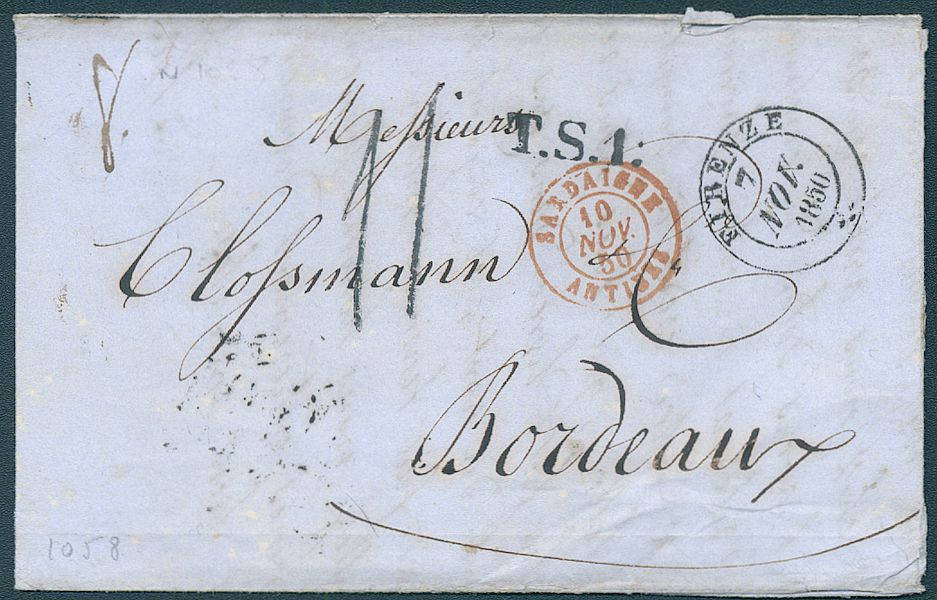 8.
Messieurs
T.S.1.
FIRENZE
7
NOV.
1850
SARDAIGNE
10
NOV.
50
ANTIBES
11
Clossmann & Cie
Bordeaux
1058